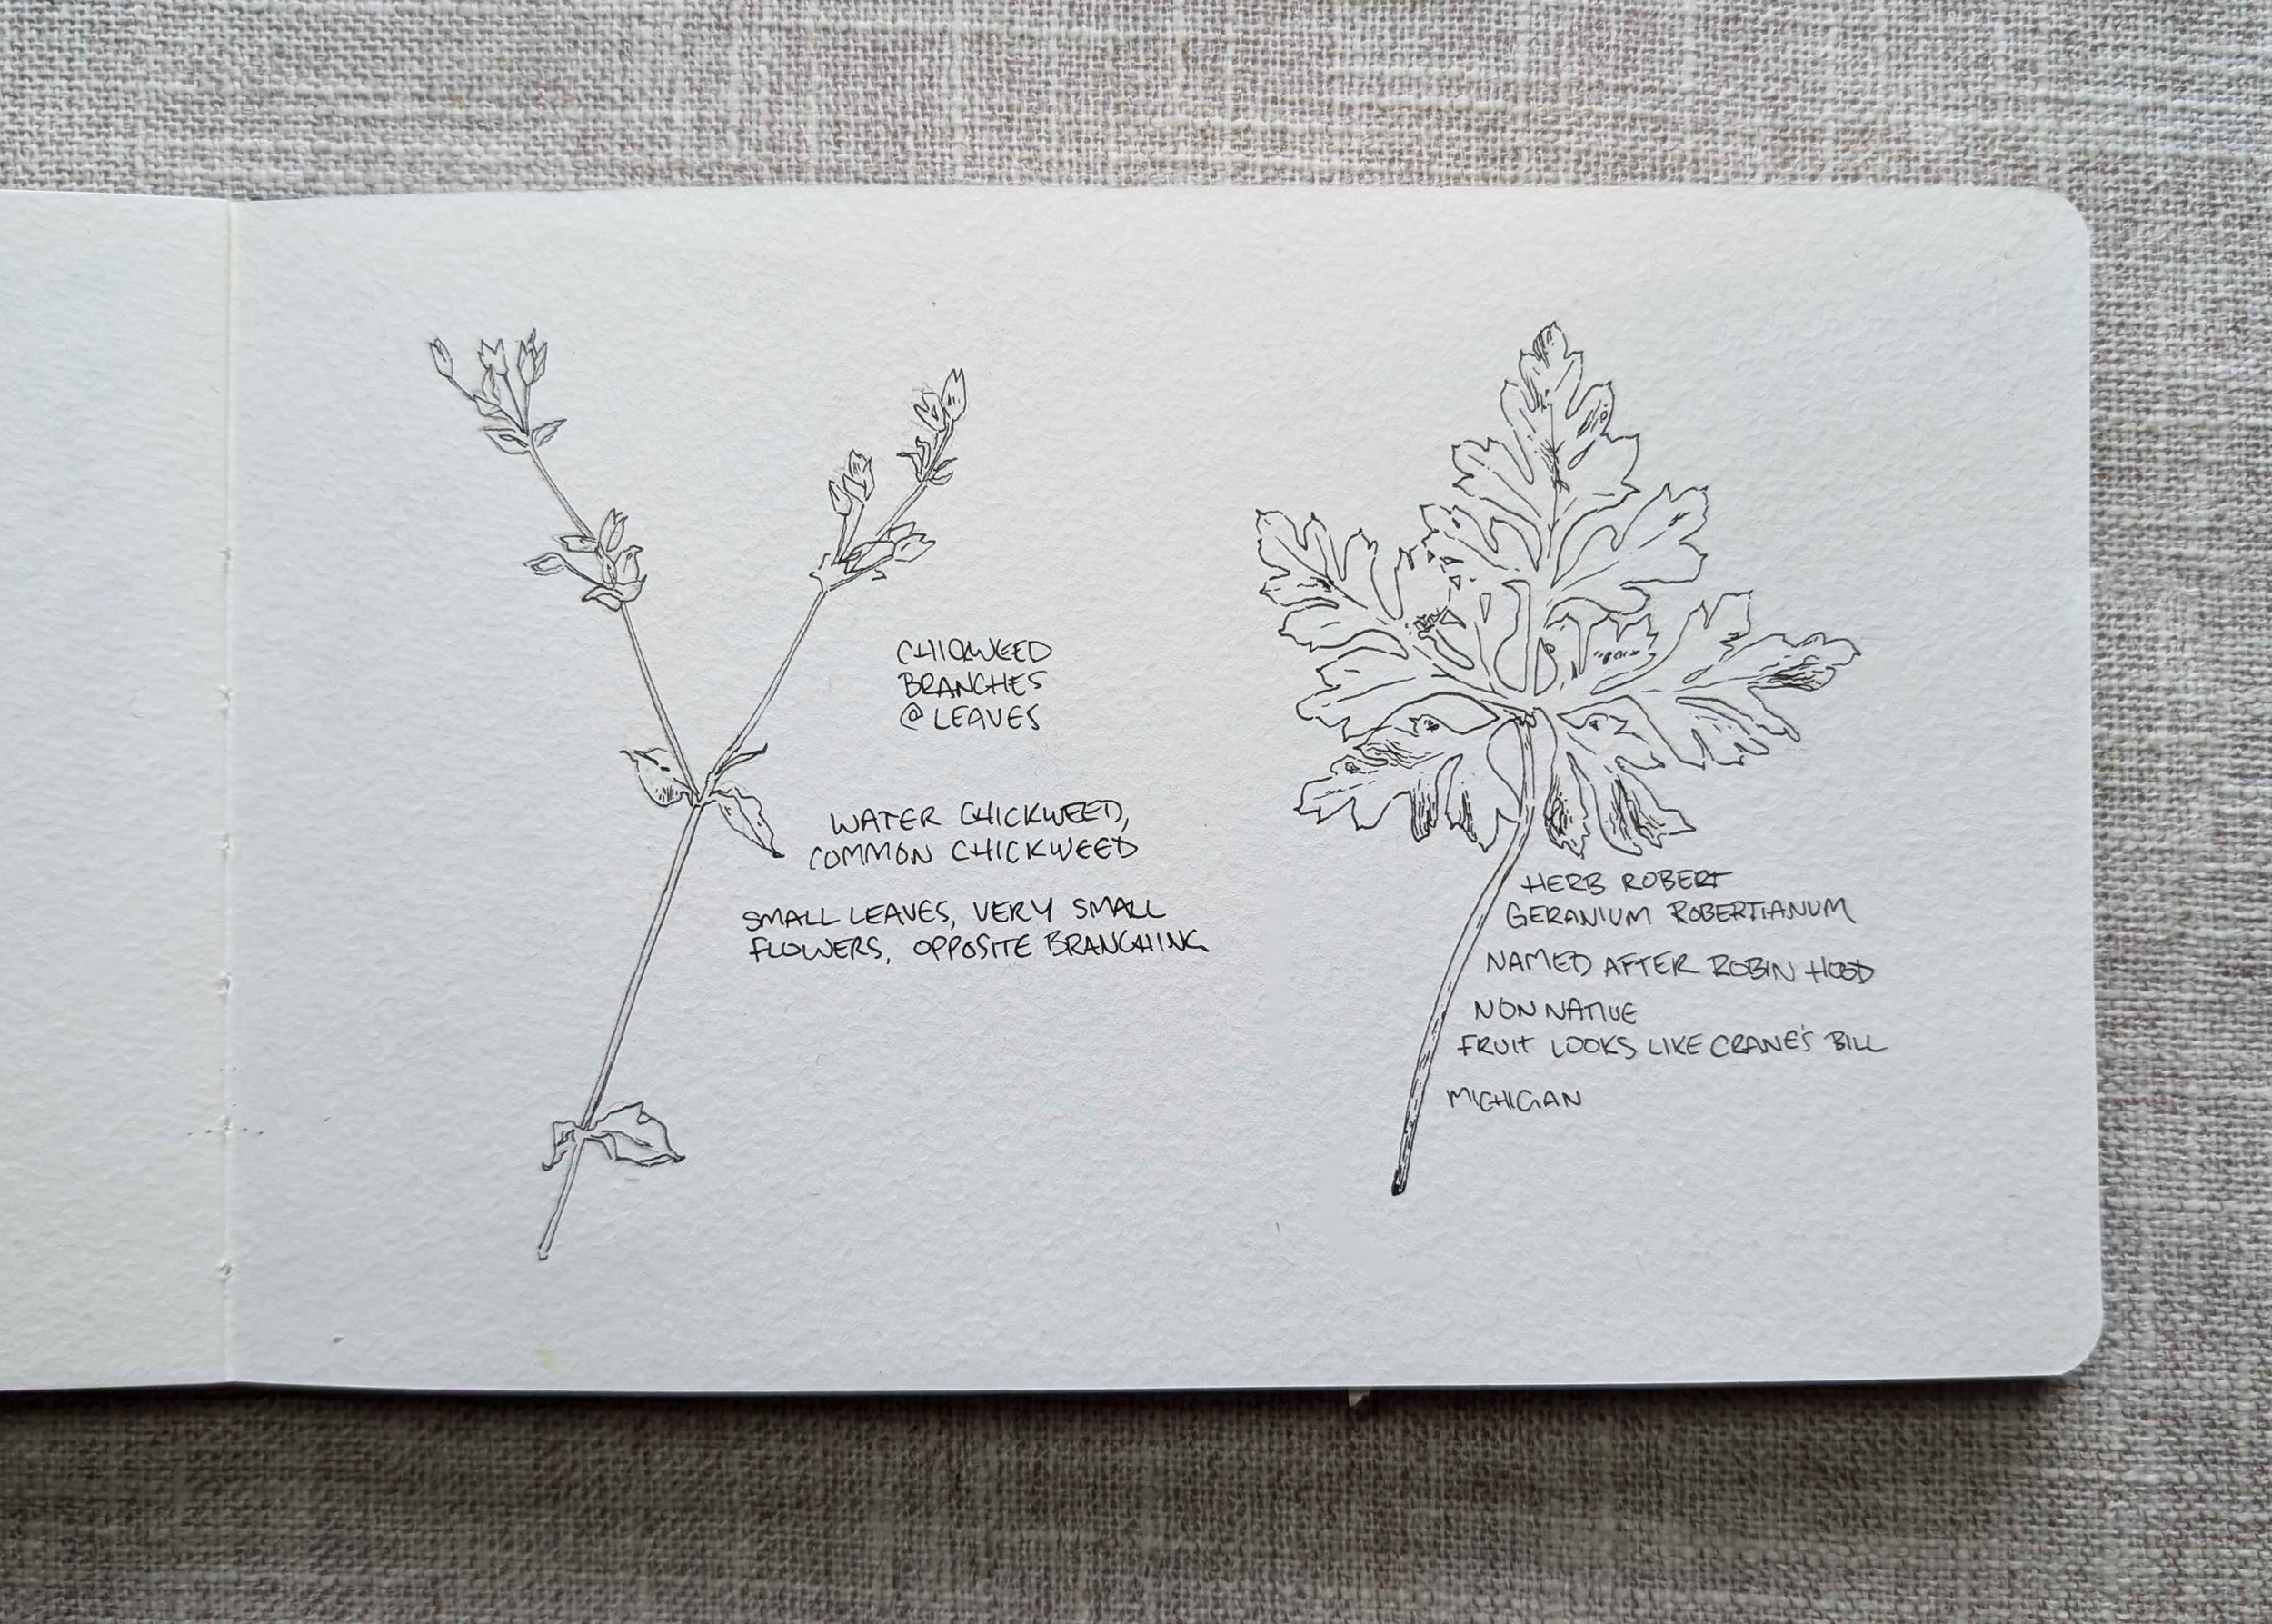 CHICKWEED
BRANCHES
@ LEAVES
WATER CHICKWEED,
COMMON CHICKWEED
SMALL LEAVES, VERY SMALL
FLOWERS, OPPOSITE BRANCHING
HERB ROBERT
GERANIUM ROBERTIANUM
NAMED AFTER ROBIN HOOD
NON NATIVE
FRUIT LOOKS LIKE CRANE'S BILL
MICHIGAN